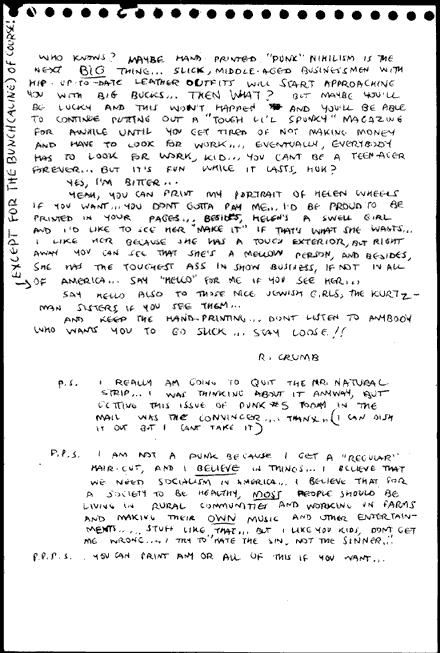 WHO KNOWS? MAYBE HAND PRINTED "PUNK" NIHILISM IS THE
NEXT BIG THING... SLICK, MIDDLE-AGED BUSINESSMEN WITH
HIP UP-TO-DATE LEATHER OUTFITS WILL START APPROACHING
YOU WITH BIG BUCKS... THEN WHAT? BUT MAYBE YOU'LL
BE LUCKY AND THIS WON'T HAPPEN AND YOU'LL BE ABLE
TO CONTINUE PUTTING OUT A "TOUGH LI'L SPUNKY" MAGAZINE
FOR AWHILE UNTIL YOU GET TIRED OF NOT MAKING MONEY
AND HAVE TO LOOK FOR WORK... EVENTUALLY, EVERYBODY
HAS TO LOOK FOR WORK, KID... YOU CAN'T BE A TEEN-AGER
FOREVER... BUT IT'S FUN WHILE IT LASTS, HUH?
YES, I'M BITTER...
YEAH, YOU CAN PRINT MY PORTRAIT OF HELEN WHEELS
IF YOU WANT... YOU DON'T GOTTA PAY ME... I'D BE PROUD TO BE
PRINTED IN YOUR PAGES... BESIDES, HELEN'S A SWELL GIRL
AND I'D LIKE TO SEE HER "MAKE IT" IF THAT'S WHAT SHE WANTS...
I LIKE HER BECAUSE SHE HAS A TOUGH EXTERIOR, BUT RIGHT
AWAY YOU CAN SEE THAT SHE'S A MELLOW PERSON, AND BESIDES,
SHE HAS THE TOUGHEST ASS IN SHOW BUSINESS, IF NOT IN ALL
OF AMERICA... SAY "HELLO" FOR ME IF YOU SEE HER...
(EXCEPT FOR THE BUNCH (ALINE) OF COURSE!
SAY HELLO ALSO TO THOSE NICE JEWISH GIRLS, THE KURTZ-
MAN SISTERS IF YOU SEE THEM...
AND KEEP THE HAND-PRINTING... DON'T LISTEN TO ANYBODY
WHO WANTS YOU TO GO SLICK... STAY LOOSE!!
R. CRUMB
P.S. I REALLY AM GOING TO QUIT THE MR. NATURAL
STRIP... I WAS THINKING ABOUT IT ANYWAY, BUT
GETTING THIS ISSUE OF PUNK #5 TODAY IN THE
MAIL WAS THE CONVINCER... THANX... (I CAN DISH
IT OUT BUT I CAN'T TAKE IT)
P.P.S. I AM NOT A PUNK BECAUSE I GET A "REGULAR"
HAIR-CUT, AND I BELIEVE IN THINGS... I BELIEVE THAT
WE NEED SOCIALISM IN AMERICA... I BELIEVE THAT FOR
A SOCIETY TO BE HEALTHY, MOST PEOPLE SHOULD BE
LIVING IN RURAL COMMUNITIES AND WORKING ON FARMS
AND MAKING THEIR OWN MUSIC AND OTHER ENTERTAIN-
MENTS.... STUFF LIKE THAT... BUT I LIKE YOU KIDS, DON'T GET
ME WRONG.... I TRY TO "HATE THE SIN, NOT THE SINNER..."
P.P.P.S. YOU CAN PRINT ANY OR ALL OF THIS IF YOU WANT...